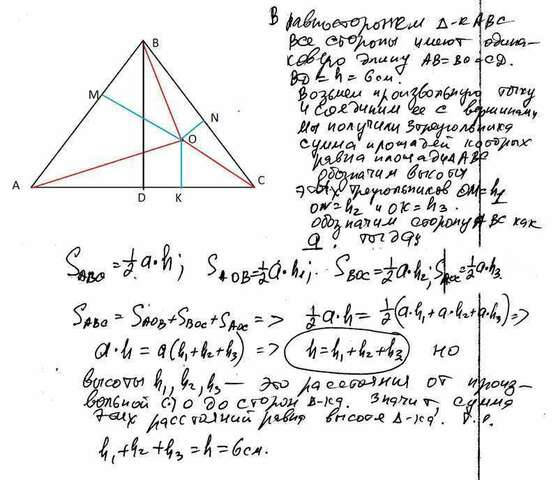 B
M
N
O
A
D
K
C
В равностороннем Δ-ке ABC
все стороны имеют одина-
ковую длину AB=BC=CD.
BD=h=6см.
Возьмем произвольную точку
и соединим ее с вершинами
Мы получили 3 треугольника
сумма площадей которых
равна площади ΔABC
обозначим высоты
этих треугольников OM=h₁
ON=h₂ и OK=h₃.
обозначим сторону ABC как
a. тогда:
S_ABC=½a·h; S_AOB=½a·h₁; S_BOC=½a·h₂; S_AOC=½a·h₃
S_ABC=S_AOB+S_BOC+S_AOC=> ½a·h=½(a·h₁+a·h₂+a·h₃)=>
a·h=a(h₁+h₂+h₃) => h=h₁+h₂+h₃ но
высоты h₁, h₂, h₃ - это расстояния от произ-
вольной O до сторон Δ-ка. Значит сумма
этих расстояний равна высоте Δ-ка.
h₁+h₂+h₃=h=6см.